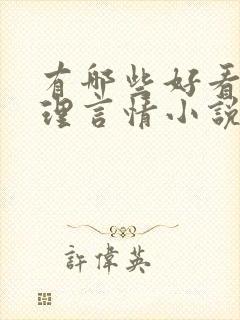 有哪些好看
理言情小說
許偉英